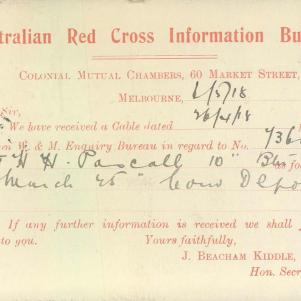 tralian Red Cross Information Bu
Colonial Mutual Chambers, 60 Market Street,
Melbourne, 2/5/18
Sir,
We have received a Cable dated 26/4/18
W. & M. Enquiry Bureau in regard to No. 736
H. H. Pascall 10" as fo
March 25" Conv Depo
If any further information is received we shall
to you.
Yours faithfully,
J. Beacham Kiddle,
Hon. Secr